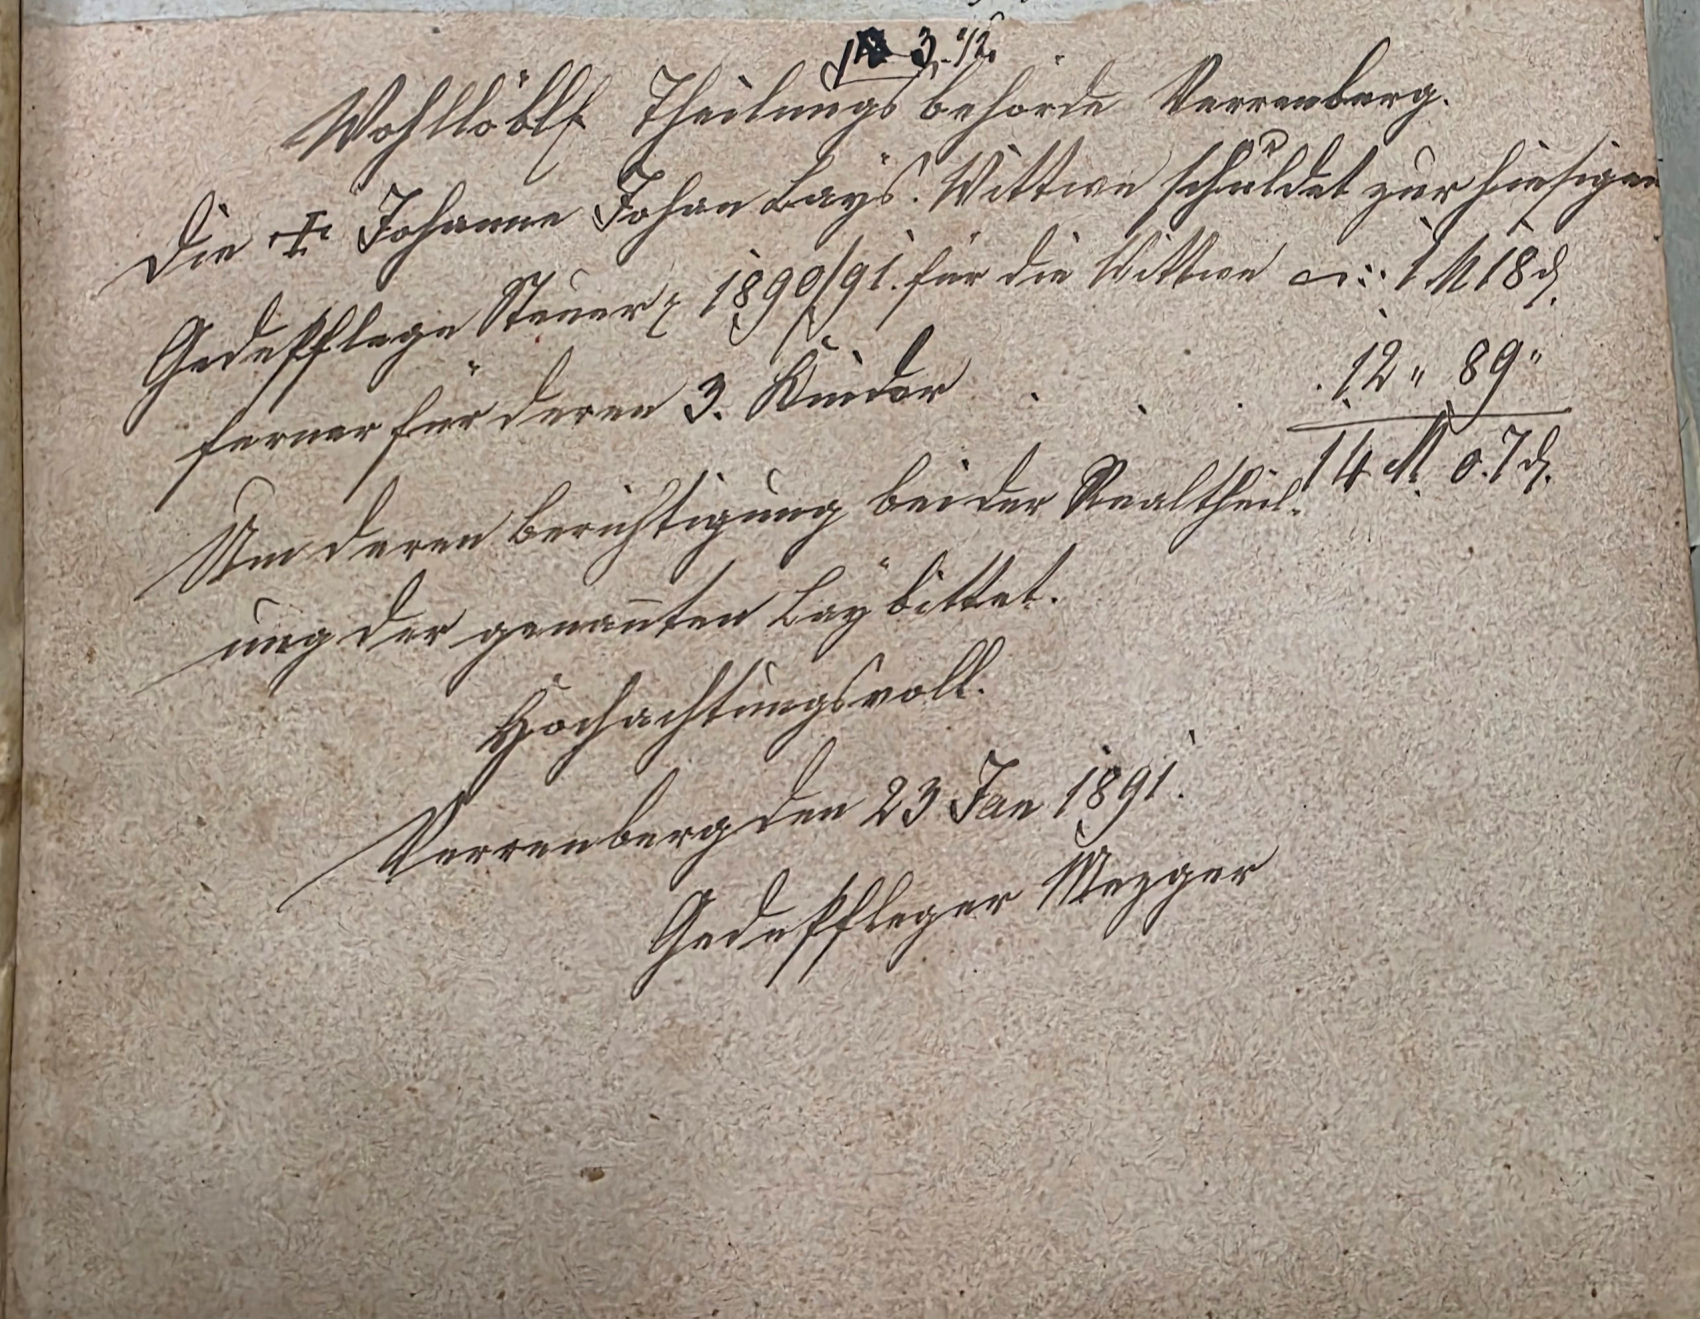 3. 12.
Wohllöbl. Theilungsbehörde Verrenberg.
Die + Johanne Johan Lay's. Wittwe schuldet zur hiesigen
Gedepflege Steuer 1890/91. für die Wittwe 1 M 18 ₰.
ferner für deren 3. Kinder . . . 12 „ 89 „
14 M. 0.7 ₰.
Um deren Berichtigung bei der Realtheil-
ung der genannten Lay bittet.
Hochachtungsvoll.
Verrenberg den 23 Jan 1891.
Gedepfleger Mezger